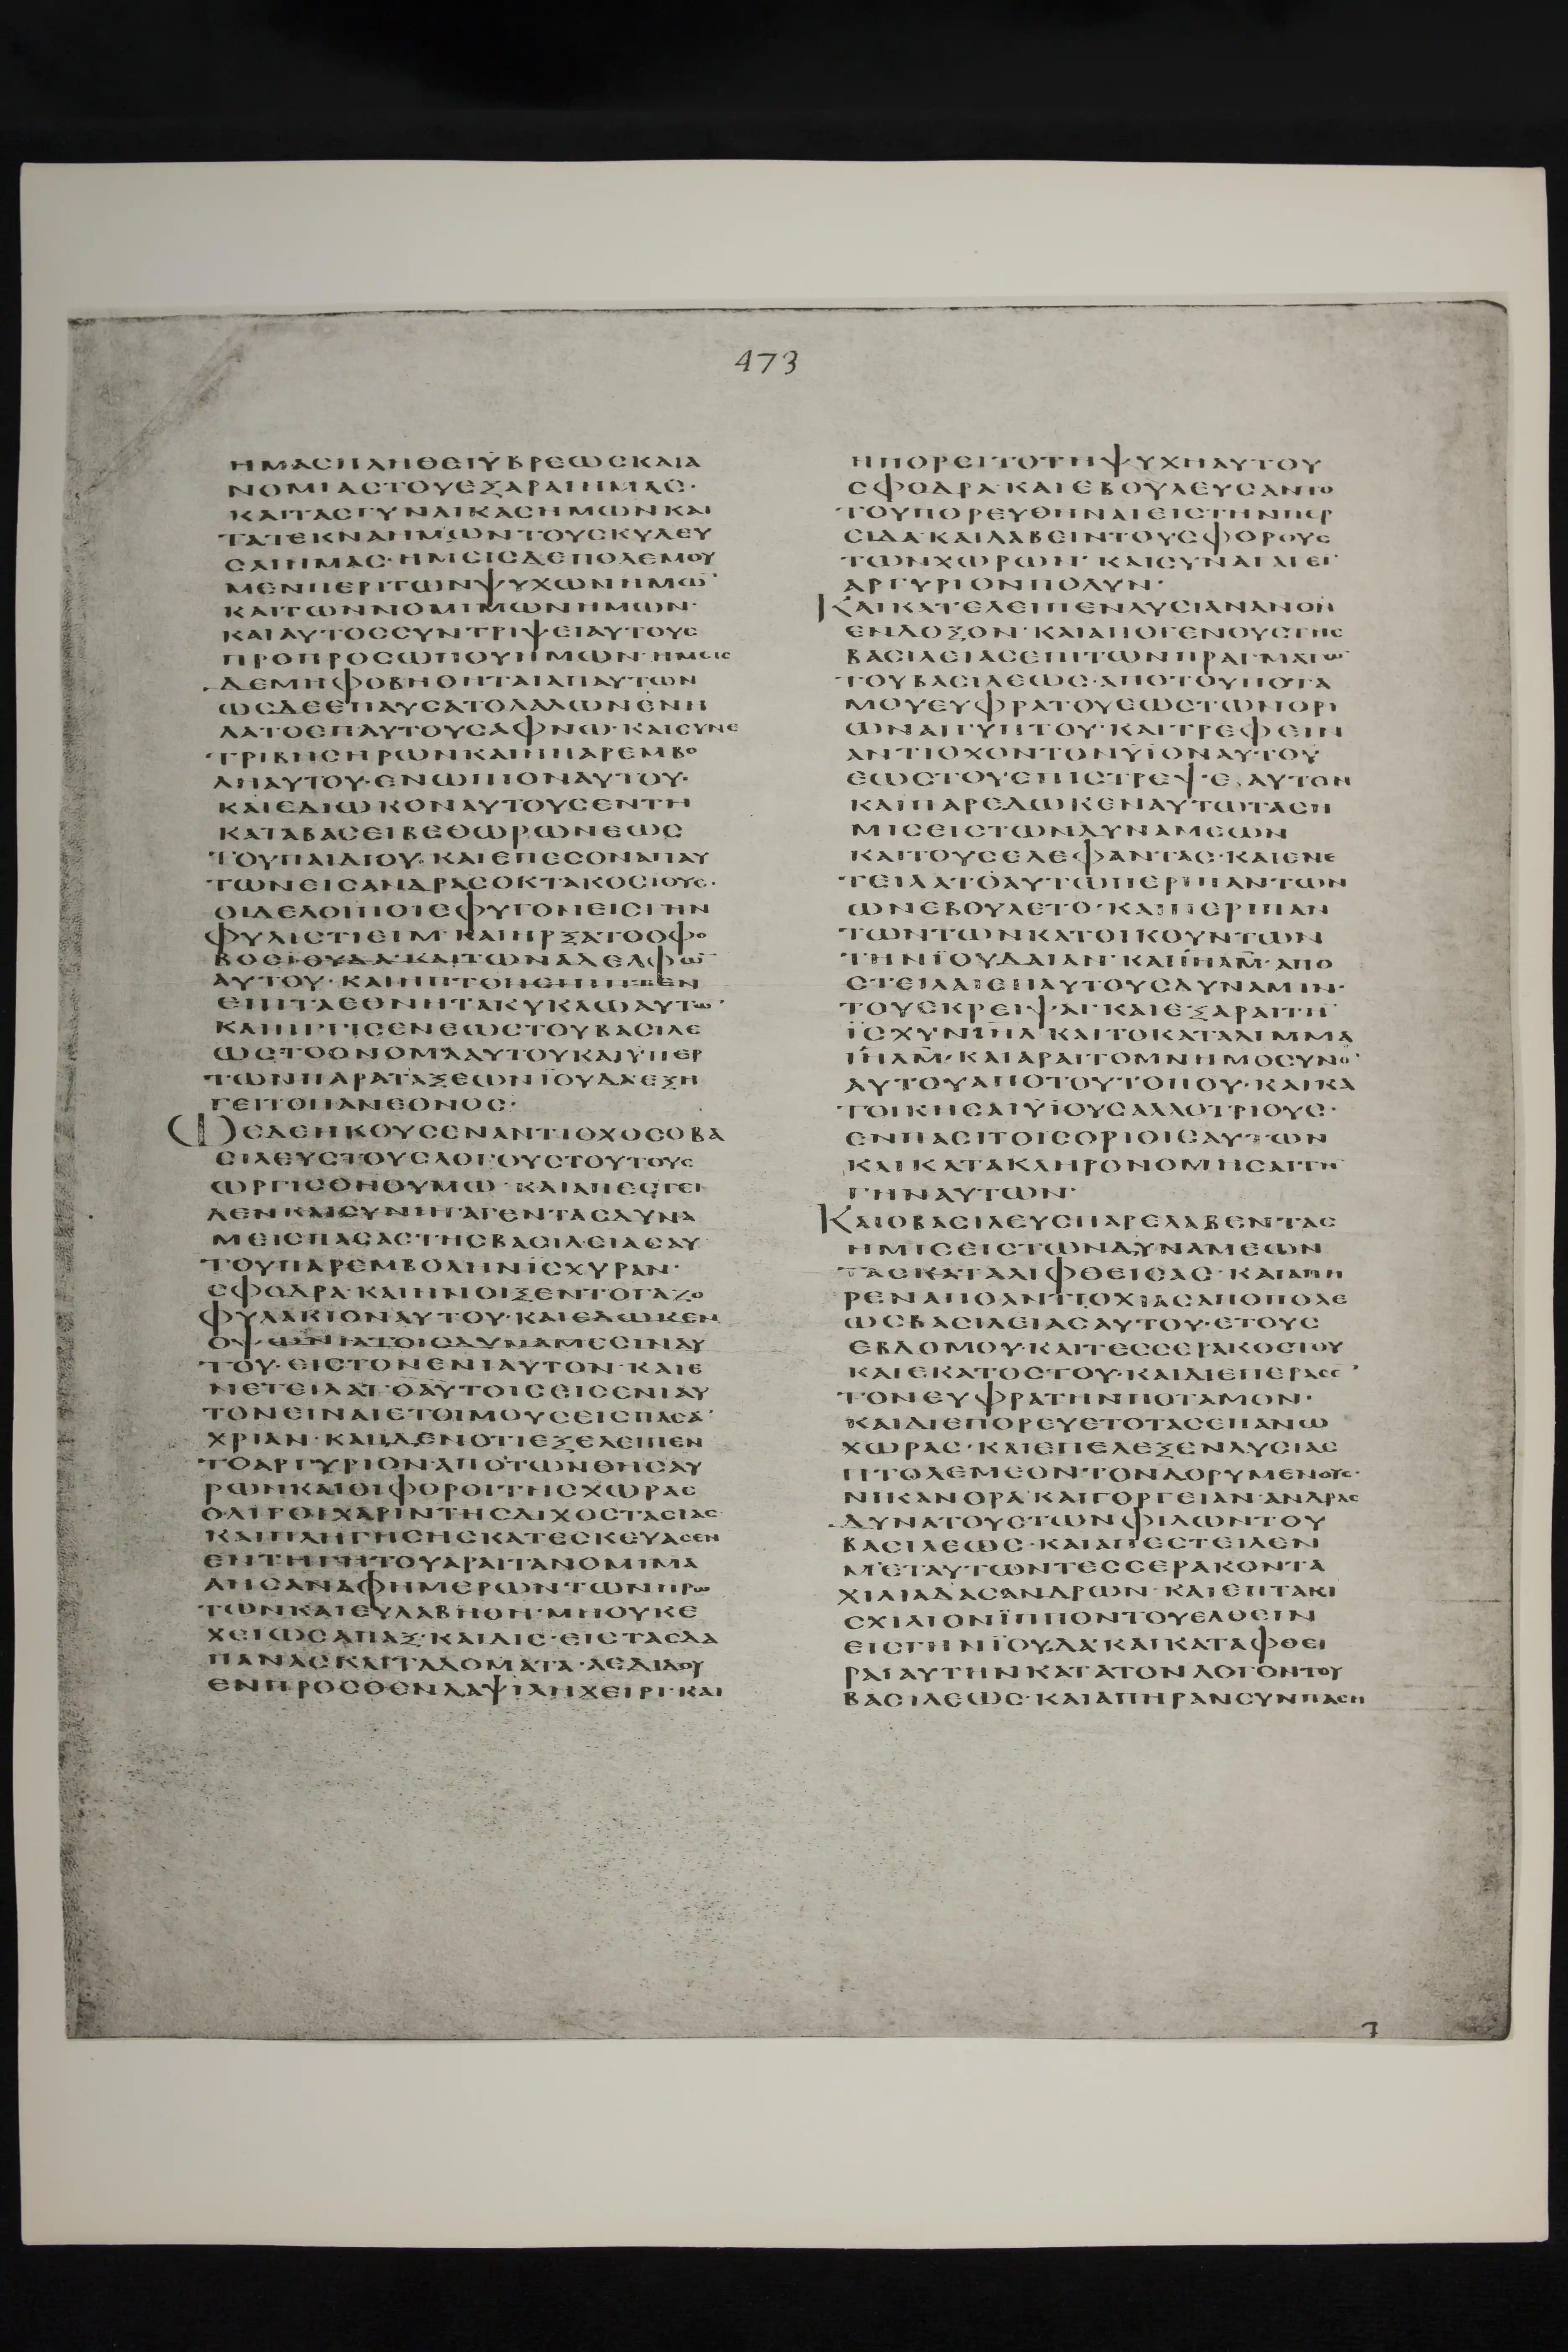 473
ΗΜΑСΠΛΗΘΕΙΥΒΡΕωСΚΑΙΑ
ΝΟΜΙΑСΤΟΥΕΞΑΡΑΙΗΜΑС·
ΚΑΙΤΑСΓΥΝΑΙΚΑСΗΜωΝΚΑΙ
ΤΑΤΕΚΝΑΗΜωΝΤΟΥСΚΥΛΕΥ
СΑΙΗΜΑС·ΗΜΕΙСΔΕΠΟΛΕΜΟΥ
ΜΕΝΠΕΡΙΤωΝΨΥΧωΝΗΜω̅
ΚΑΙΤωΝΝΟΜΙΜωΝΗΜωΝ·
ΚΑΙΑΥΤΟССΥΝΤΡΙΨΕΙΑΥΤΟΥС
ΠΡΟΠΡΟСωΠΟΥΗΜωΝ·ΗΜΕΙС
ΔΕΜΗΦΟΒΗΘΗΤΑΙΑΠΑΥΤωΝ
ωСΔΕΕΠΑΥСΑΤΟΛΑΛωΝΕΝΗ
ΛΑΤΟΕΠΑΥΤΟΥСΑΦΝω·ΚΑΙСΥΝΕ
ΤΡΙΒΗСΗΡωΝΚΑΙΗΠΑΡΕΜΒΟ
ΛΗΑΥΤΟΥ·ΕΝωΠΙΟΝΑΥΤΟΥ·
ΚΑΙΕΔΙωΚΟΝΑΥΤΟΥСΕΝΤΗ
ΚΑΤΑΒΑСΕΙΒΕΘωΡωΝΕωС
ΤΟΥΠΑΙΔΙΟΥ·ΚΑΙΕΠΕСΟΝΑΠΑΥ
ΤωΝΕΙСΑΝΔΡΑСΟΚΤΑΚΟСΙΟΥС·
ΟΙΔΕΛΟΙΠΟΙΕΦΥΓΟΝΕΙСΓΗΝ
ΦΥΛΙСΤΙΕΙΜ·ΚΑΙΗΡΞΑΤΟΟΦΟ
ΒΟСΙΟΥΔΑ·ΚΑΙΤωΝΑΔΕΛΦω̅
ΑΥΤΟΥ·ΚΑΙΗΠΤΟΗСΗΠΙΠΤΕΝ
ΕΠΙΤΑΕΘΝΗΤΑΚΥΚΛωΑΥΤω̅·
ΚΑΙΗΓΓΙСΕΝΕωСΤΟΥΒΑСΙΛΕ
ωСΤΟΟΝΟΜΑΑΥΤΟΥΚΑΙΥΠΕΡ
ΤωΝΠΑΡΑΤΑΞΕωΝΪΟΥΔΑΕΞΗ
ΓΕΙΤΟΠΑΝΕΘΝΟС·
ωСΔΕΗΚΟΥСΕΝΑΝΤΙΟΧΟСΟΒΑ
СΙΛΕΥСΤΟΥСΛΟΓΟΥСΤΟΥΤΟΥС
ωΡΓΙСΘΗΘΥΜω·ΚΑΙΑΠΕСΤΕΙ
ΛΕΝΚΑΙСΥΝΗΓΑΓΕΝΤΑСΔΥΝΑ
ΜΕΙСΠΑСΑСΤΗСΒΑСΙΛΕΙΑСΑΥ
ΤΟΥΠΑΡΕΜΒΟΛΗΝΪСΧΥΡΑΝ·
СΦΟΔΡΑ·ΚΑΙΗΝΟΙΞΕΝΤΟΓΑΖΟ
ΦΥΛΑΚΙΟΝΑΥΤΟΥ·ΚΑΙΕΔωΚΕΝ
ΟΨωΝΙΑΤΟΙСΔΥΝΑΜΕСΙΝΑΥ
ΤΟΥ·ΕΙСΤΟΝΕΝΙΑΥΤΟΝ·ΚΑΙΕ
ΝΕΤΕΙΛΑΤΟΑΥΤΟΙСΕΙСΕΝΙΑΥ
ΤΟΝΕΙΝΑΙΕΤΟΙΜΟΥСΕΙСΠΑСΑ̅
ΧΡΙΑΝ·ΚΑΙΙΔΕΝΟΤΙΕΞΕΛΕΙΠΕΝ
ΤΟΑΡΓΥΡΙΟΝΑΠΟΤωΝΘΗСΑΥ
ΡωΝΚΑΙΟΙΦΟΡΟΙΤΗСΧωΡΑС
ΟΛΙΓΟΙΧΑΡΙΝΤΗСΔΙΧΟСΤΑСΙΑС
ΚΑΙΠΛΗΓΗСΗСΚΑΤΕСΚΕΥΑСΕΝ
ΕΝΤΗΓΗΤΟΥΑΡΑΙΤΑΝΟΜΙΜΑ
ΑΗСΑΝΑΦΗΜΕΡωΝΤωΝΠΡω
ΤωΝΚΑΙΕΥΛΑΒΗΘΗ·ΜΗΟΥΚΕ
ΧΕΙωСΑΠΑΞ·ΚΑΙΔΙС·ΕΙСΤΑСΔΑ
ΠΑΝΑСΚΑΙΤΑΔΟΜΑΤΑ·ΔΕΔΙΔΟΥ
ΕΝΠΡΟСΘΕΝΔΑΨΙΛΗΧΕΙΡΙ·ΚΑΙ
ΗΠΟΡΕΙΤΟΤΗΨΥΧΗΑΥΤΟΥ
СΦΟΔΡΑ·ΚΑΙΕΒΟΥΛΕΥСΑΝΤΟ
ΤΟΥΠΟΡΕΥΘΗΝΑΙΕΙСΤΗΝΠΕΡ
СΙΔΑ·ΚΑΙΛΑΒΕΙΝΤΟΥСΦΟΡΟΥС
ΤωΝΧωΡωΝ·ΚΑΙСΥΝΑΓΑΓΕΙ̅
ΑΡΓΥΡΙΟΝΠΟΛΥΝ·
ΚΑΙΚΑΤΕΛΕΙΠΕΝΛΥСΙΑΝΑΝΟΝ
ΕΝΔΟΞΟΝ·ΚΑΙΑΠΟΓΕΝΟΥСΤΗС
ΒΑСΙΛΕΙΑСΕΠΙΤωΝΠΡΑΓΜΑΤω̅
ΤΟΥΒΑСΙΛΕωС·ΑΠΟΤΟΥΠΟΤΑ
ΜΟΥΕΥΦΡΑΤΟΥΕωСΤωΝΟΡΙ
ωΝΑΙΓΥΠΤΟΥ·ΚΑΙΤΡΕΦΕΙΝ
ΑΝΤΙΟΧΟΝΤΟΝΥΪΟΝΑΥΤΟΥ
ΕωСΤΟΥΕΠΙСΤΡΕΨΕ·ΑΥΤΟΝ
ΚΑΙΠΑΡΕΔωΚΕΝΑΥΤωΤΑСΗ
ΜΙСΕΙСΤωΝΔΥΝΑΜΕωΝ
ΚΑΙΤΟΥСΕΛΕΦΑΝΤΑС·ΚΑΙΕΝΕ
ΤΕΙΛΑΤΟΑΥΤωΠΕΡΙΠΑΝΤωΝ
ωΝΕΒΟΥΛΕΤΟ·ΚΑΙΠΕΡΙΠΑΝ
ΤωΝΤωΝΚΑΤΟΙΚΟΥΝΤωΝ
ΤΗΝΪΟΥΔΑΙΑΝ·ΚΑΙΙΗΛΜ·ΑΠΟ
СΤΕΙΛΑΙΕΠΑΥΤΟΥСΔΥΝΑΜΙΝ·
ΤΟΥΕΚΡΕΙΨΑΙ·ΚΑΙΕΞΑΡΑΙΤΗ̅
ΪСΧΥΝΙΗΛ·ΚΑΙΤΟΚΑΤΑΛΙΜΜΑ
ΙΗΛΜ·ΚΑΙΑΡΑΙΤΟΜΝΗΜΟСΥΝΟ̅
ΑΥΤΟΥΑΠΟΤΟΥΤΟΠΟΥ·ΚΑΙΚΑ
ΤΟΙΚΗСΑΙΥΪΟΥСΑΛΛΟΤΡΙΟΥС·
ΕΝΠΑСΙΤΟΙСΟΡΙΟΙСΑΥΤωΝ
ΚΑΙΚΑΤΑΚΛΗΡΟΝΟΜΗСΑΙΤΗ̅
ΓΗΝΑΥΤωΝ·
ΚΑΙΟΒΑСΙΛΕΥСΠΑΡΕΛΑΒΕΝΤΑС
ΗΜΙСΕΙСΤωΝΔΥΝΑΜΕωΝ
ΤΑСΚΑΤΑΛΙΦΘΕΙСΑС·ΚΑΙΑΠΗ
ΡΕΝΑΠΟΑΝΤΙΟΧΙΑСΑΠΟΠΟΛΕ
ωСΒΑСΙΛΕΙΑСΑΥΤΟΥ·ΕΤΟΥС
ΕΒΔΟΜΟΥ·ΚΑΙΤΕССΕΡΑΚΟСΤΟΥ
ΚΑΙΕΚΑΤΟСΤΟΥ·ΚΑΙΔΙΕΠΕΡΑСΕ̅
ΤΟΝΕΥΦΡΑΤΗΝΠΟΤΑΜΟΝ·
ΚΑΙΔΙΕΠΟΡΕΥΕΤΟΤΑСΕΠΑΝω
ΧωΡΑС·ΚΑΙΕΠΕΛΕΞΕΝΛΥСΙΑС
ΠΤΟΛΕΜΕΟΝΤΟΝΔΟΡΥΜΕΝΟΥС·
ΝΙΚΑΝΟΡΑ·ΚΑΙΓΟΡΓΕΙΑΝ·ΑΝΔΡΑС
ΔΥΝΑΤΟΥСΤωΝΦΙΛωΝΤΟΥ
ΒΑСΙΛΕωС·ΚΑΙΑΠΕСΤΕΙΛΕΝ
ΜΕΤΑΥΤωΝΤΕССΕΡΑΚΟΝΤΑ
ΧΙΛΙΑΔΑСΑΝΔΡωΝ·ΚΑΙΕΠΤΑΚΙ
СΧΙΛΙΟΝΪΠΠΟΝΤΟΥΕΛΘΕΙΝ
ΕΙСΓΗΝΪΟΥΔΑ·ΚΑΙΚΑΤΑΦΘΕΙ
ΡΑΙΑΥΤΗΝΚΑΤΑΤΟΝΛΟΓΟΝΤΟΥ
ΒΑСΙΛΕωС·ΚΑΙΑΠΗΡΑΝСΥΝΠΑСΗ